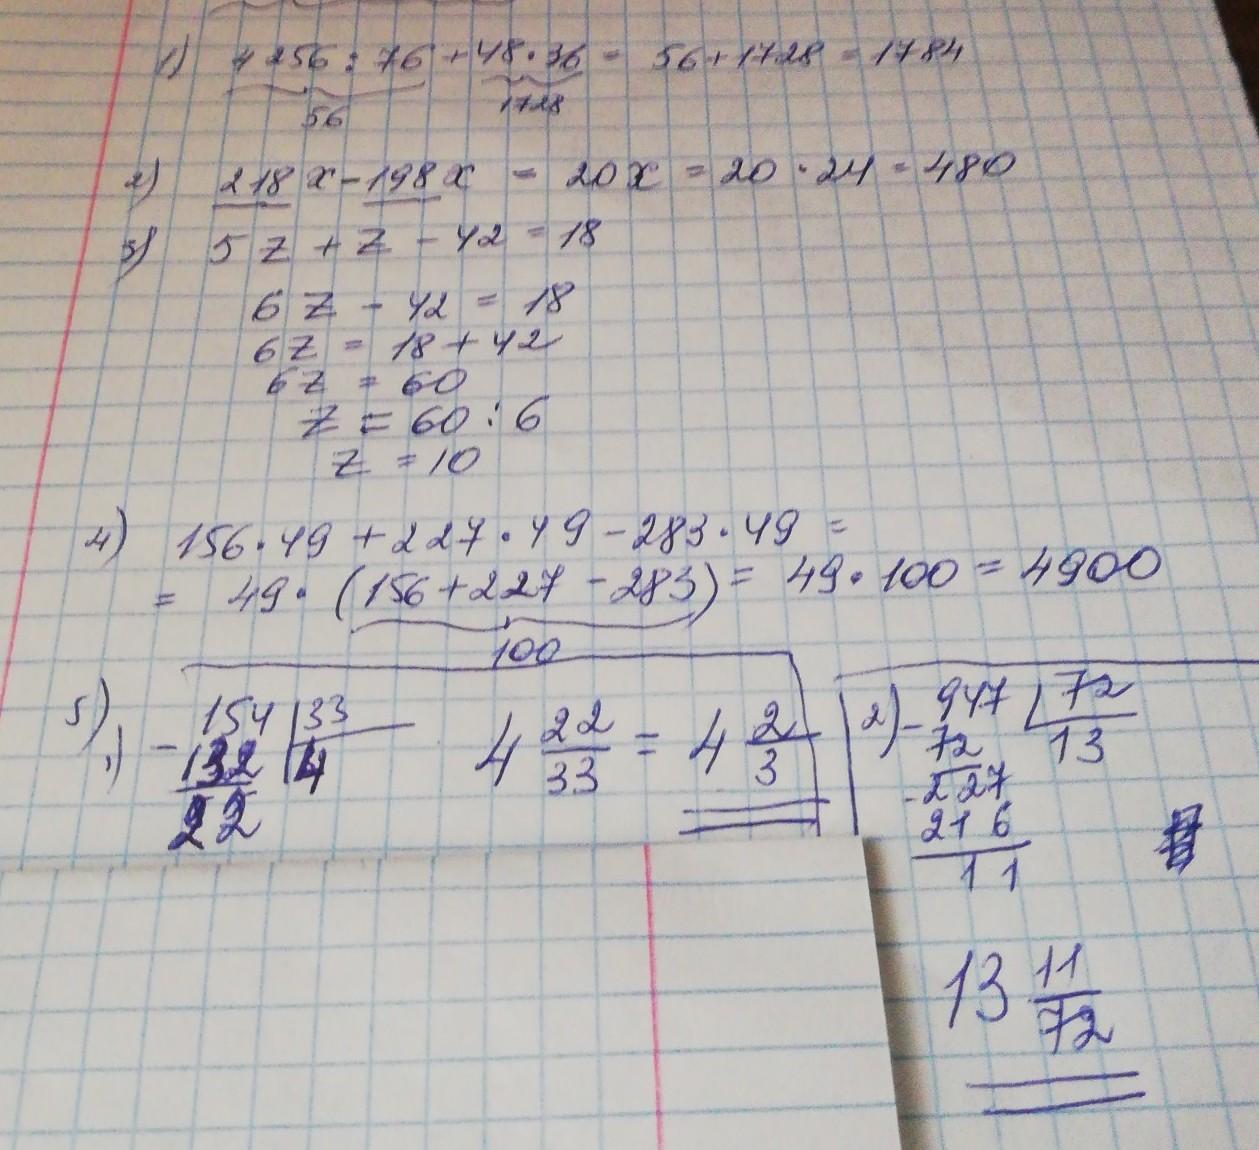 1) 4256 : 76 + 48 · 36 = 56 + 1728 = 1784
56 1728
2) 218 x - 198 x = 20 x = 20 · 24 = 480
3) 5 z + z - 42 = 18
6 z - 42 = 18
6z = 18 + 42
6z = 60
z = 60 : 6
z = 10
4) 156 · 49 + 227 · 49 - 283 · 49 =
= 49 · (156 + 227 - 283) = 49 · 100 = 4900
100
5)
1) - 154 | 33
132 4
22
4 22/33 = 4 2/3
2) - 947 | 72
72 13
- 227
216
11
13 11/72